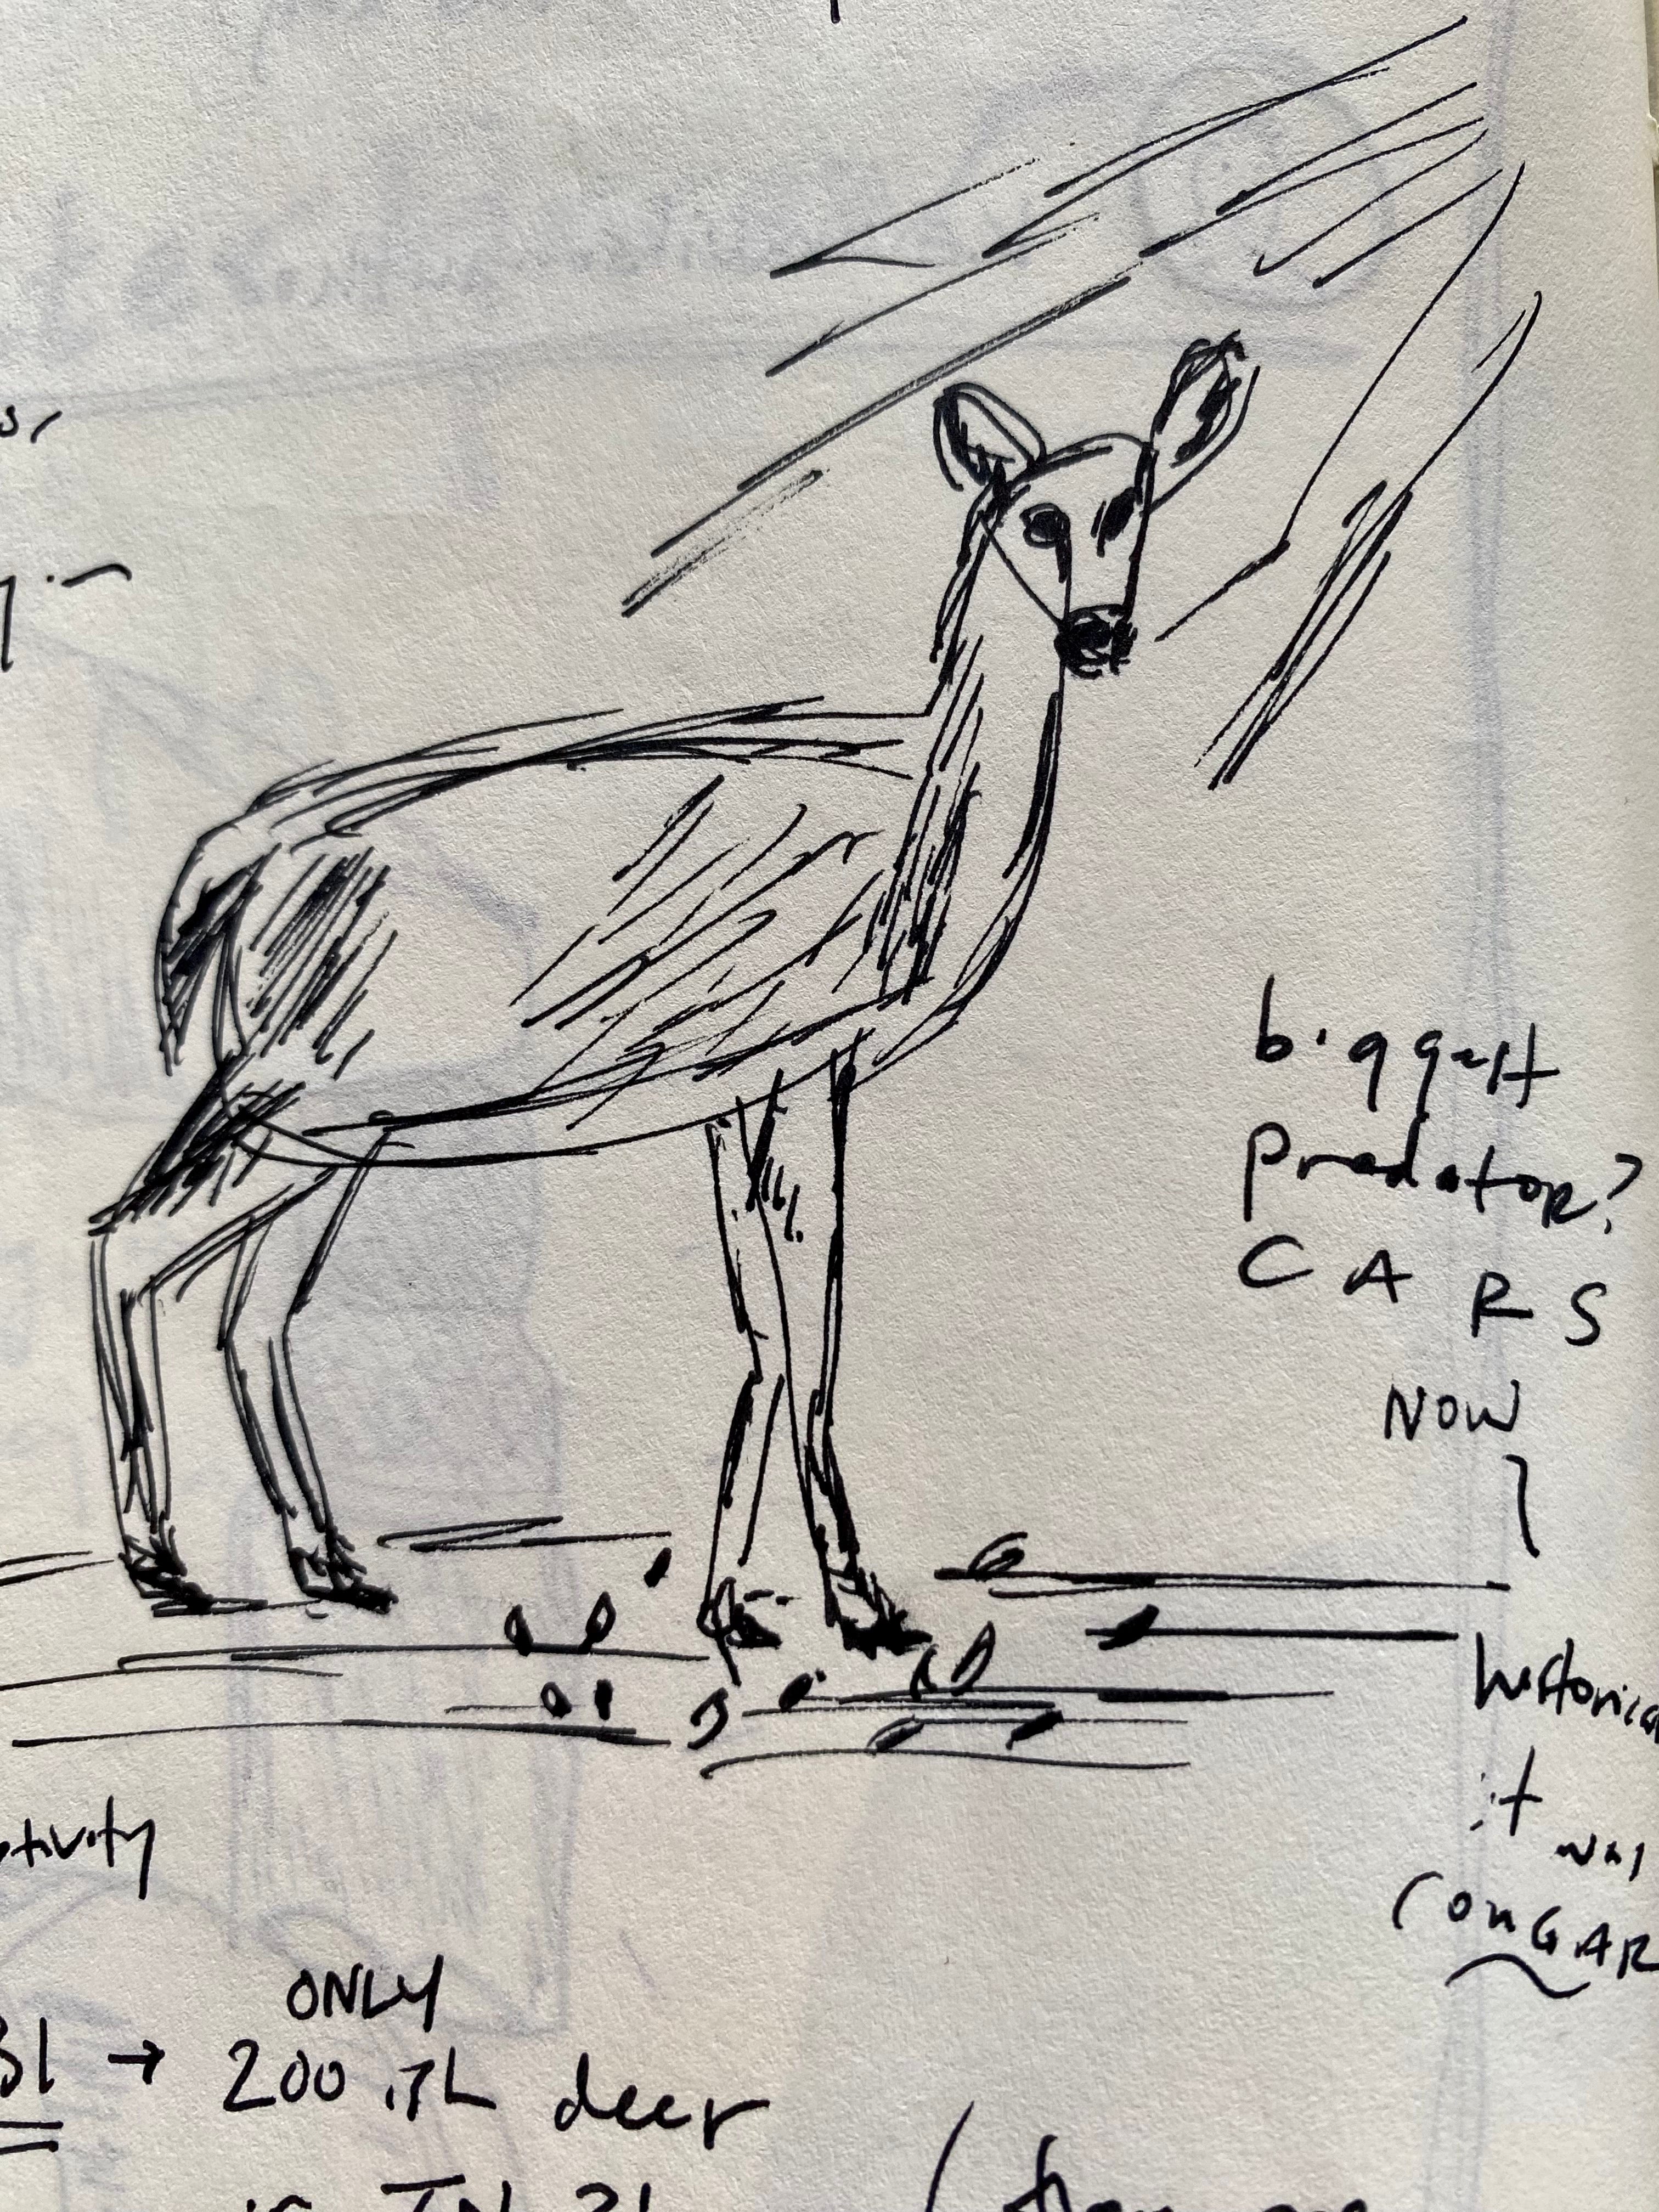 biggest
predator?
CARS
NOW
historica
it was
COUGAR
tivity
ONLY
31 → 200 deer
IN